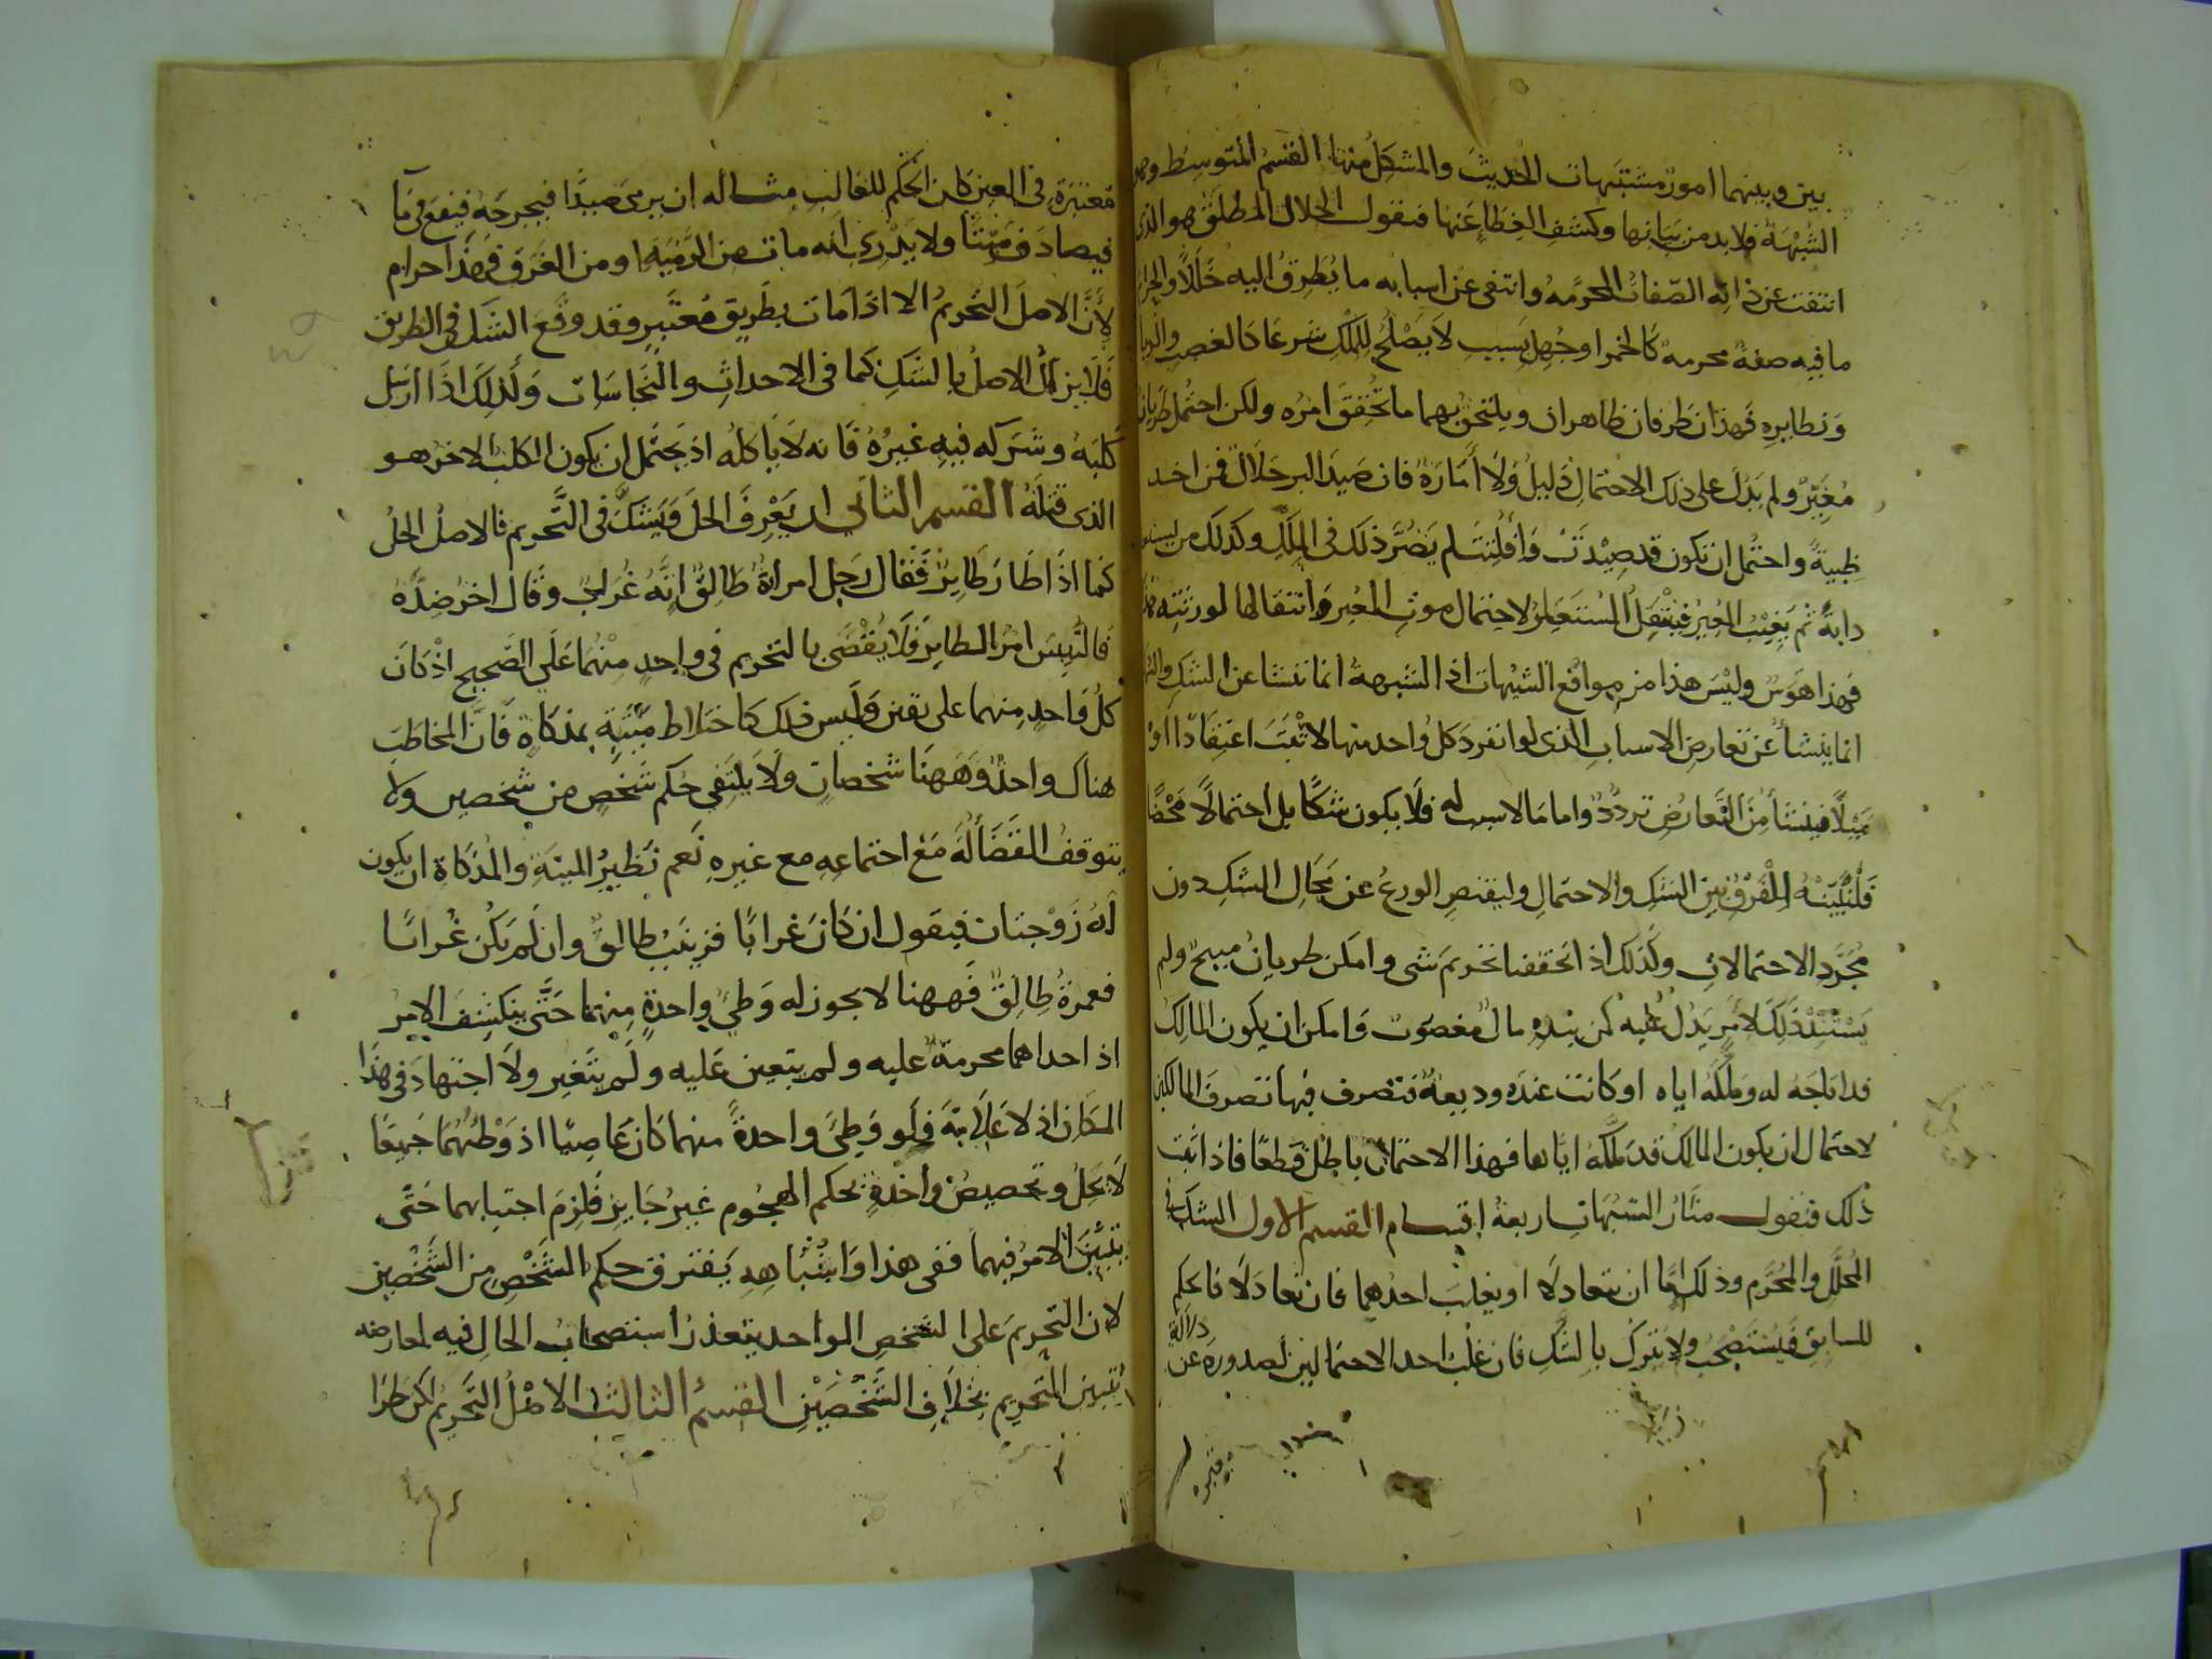 بين وبينهما امور مشتبهات الحديث والمشكل منها القسم المتوسط وهو
الشبهة فلا بد من بيانها وكشف الغطا عنها فنقول الحلال المطلق هو الذي
انتفت عن ذاته الصفات المحرمة وانتفى عن اسبابه ما يطرق اليه خللا والحرام
ما فيه صفة محرمة كالخمر او جهل بسبب لا يصلح للملك شرعا كالغصب والربا
ونظايره فهذان طرفان ظاهران ويلتحق بهما ما تحقق امره ولكن احتمل طريان
مغير ولم يدل على ذلك الاحتمال دليل ولا أمارة فان صيد البر حلال فمن اخد
ظبية واحتمل ان تكون قد صيدت وأفلتت لم يضر ذلك في الملك وكذلك من يستعير
دابة ثم يغيب المعير فينتقل المستعير لاحتمال موت المعير وانتقالها لورثته
فهذا هوس وليس هذا من مواقع الشبهات اذ الشبهة انما تنشا عن الشك والشك
انما ينشأ عن تعارض الاسباب الذي لو انفرد كل واحد منها لاثبت اعتقادا او
ميلا فينشأ من التعارض تردد واما ما لا سبب له فلا يكون شكا بل احتمالا محضا
فليتنبه للفرق بين الشك والاحتمال وليقتصر الورع عن مجال الشك دون
مجرد الاحتمالات وكذلك اذا تحققنا تحريم شى وامكن طريان مبيح ولم
يستند ذلك لامر يدل عليه كمن بيده مال مغصوب وامكن ان يكون المالك
قد اباحه له وملكه اياه او كانت عنده وديعة فتصرف فيها تصرف المالكين
لاحتمال ان يكون المالك قد ملكه اياها فهذا الاحتمال باطل قطعا فاذا ثبت
ذلك فنقول مثار الشبهات اربعة اقسام القسم الاول الشك في
المحلل والمحرم وذلك اما ان يتعادلا او يغلب احدهما فان تعادلا فالحكم
للسابق فيستصحب ولا يترك بالشك فان غلب احد الاحتمالين لصدوره عن دلالة
معتبرة في العين كان الحكم للغالب مثاله ان يرى صيدا فيجرحه فيقع في مآ
فيصادف ميتا ولا يدري انه مات من الرمية او من الغرق فهذا حرام
لأن الاصل التحريم الا اذا مات بطريق معتبر وقد وقع الشك في الطريق
فلا يزال الاصل بالشك كما في الاحداث والنجاسات وكذلك اذا ارسل
كلبه وشركه فيه غيره فانه لا ياكله اذ يحتمل ان يكون الكلب الاخر هو
الذي قتله القسم الثاني ان يعرف الحل ويشك في التحريم فالاصل الحل
كما اذا طار طاير فقال رجل امراة طالق انه غراب وقال اخر ضده
فالتبس امر الطاير فلا يقضى بالتحريم في واحد منهما على الصحيح اذ كان
كل واحد منهما على يقين وليس ذلك كاختلاط ميتة بمذكاة فان المخاطب
هناك واحد وههنا شخصان ولا يلتفى حكم شخص من شخصين ولا
يتوقف القضا له مع اجتماعه مع غيره نعم نظير الميتة والمذكاة ان يكون
له زوجتان فيقول ان كان غرابا فزينب طالق وان لم يكن غرابا
فعمرة طالق فههنا لا يجوز له وطي واحدة منهما حتى ينكشف الامر
اذ احداهما محرمة عليه ولم يتعين عليه ولم يتغير ولا اجتهاد في هذا
المكان اذ لا علامة فلو وطي واحدة منهما كان عاصيا اذ وطئهما جميعا
لا يحل وتخصيص واحدة بحكم الهجوم غير جايز فلزم اجتنابهما حتى
يتبين الامر فيهما ففى هذا واشباهه يفترق حكم الشخص من الشخصين
لان التحريم على الشخص الواحد يتعذر استصحاب الحال فيه لمعارضه
تيقن التحريم بخلاف الشخصين القسم الثالث الاصل التحريم لكن طرا